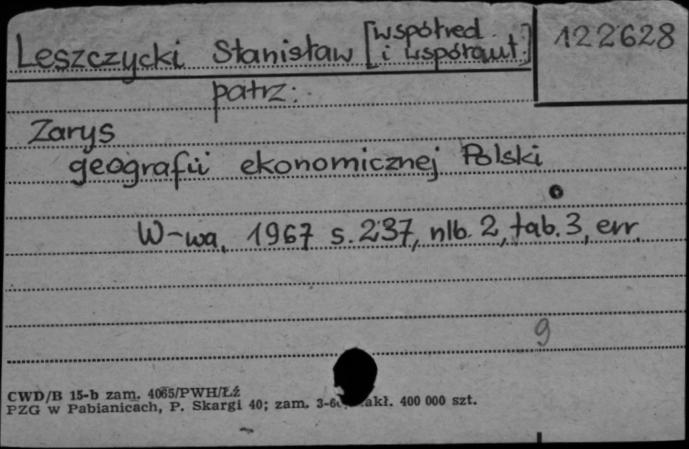 Leszczycki Stanisław [współred.
i współaut.]
122628
patrz:
Zarys
geografii ekonomicznej Polski
W-wa, 1967 s. 237, nlb. 2, tab. 3, err.
9
CWD/B 15-b zam. 4065/PWH/Łź
PZG w Pabianicach, P. Skargi 40; zam. 400 000 szt.